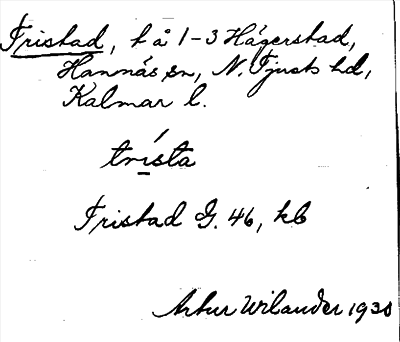 Tristad, t å 1-3 Hägerstad,
Hannäs sn, N. Tjusts hd,
Kalmar l.
trista
Tristad G. 46, kb
Artur Wilander 1930